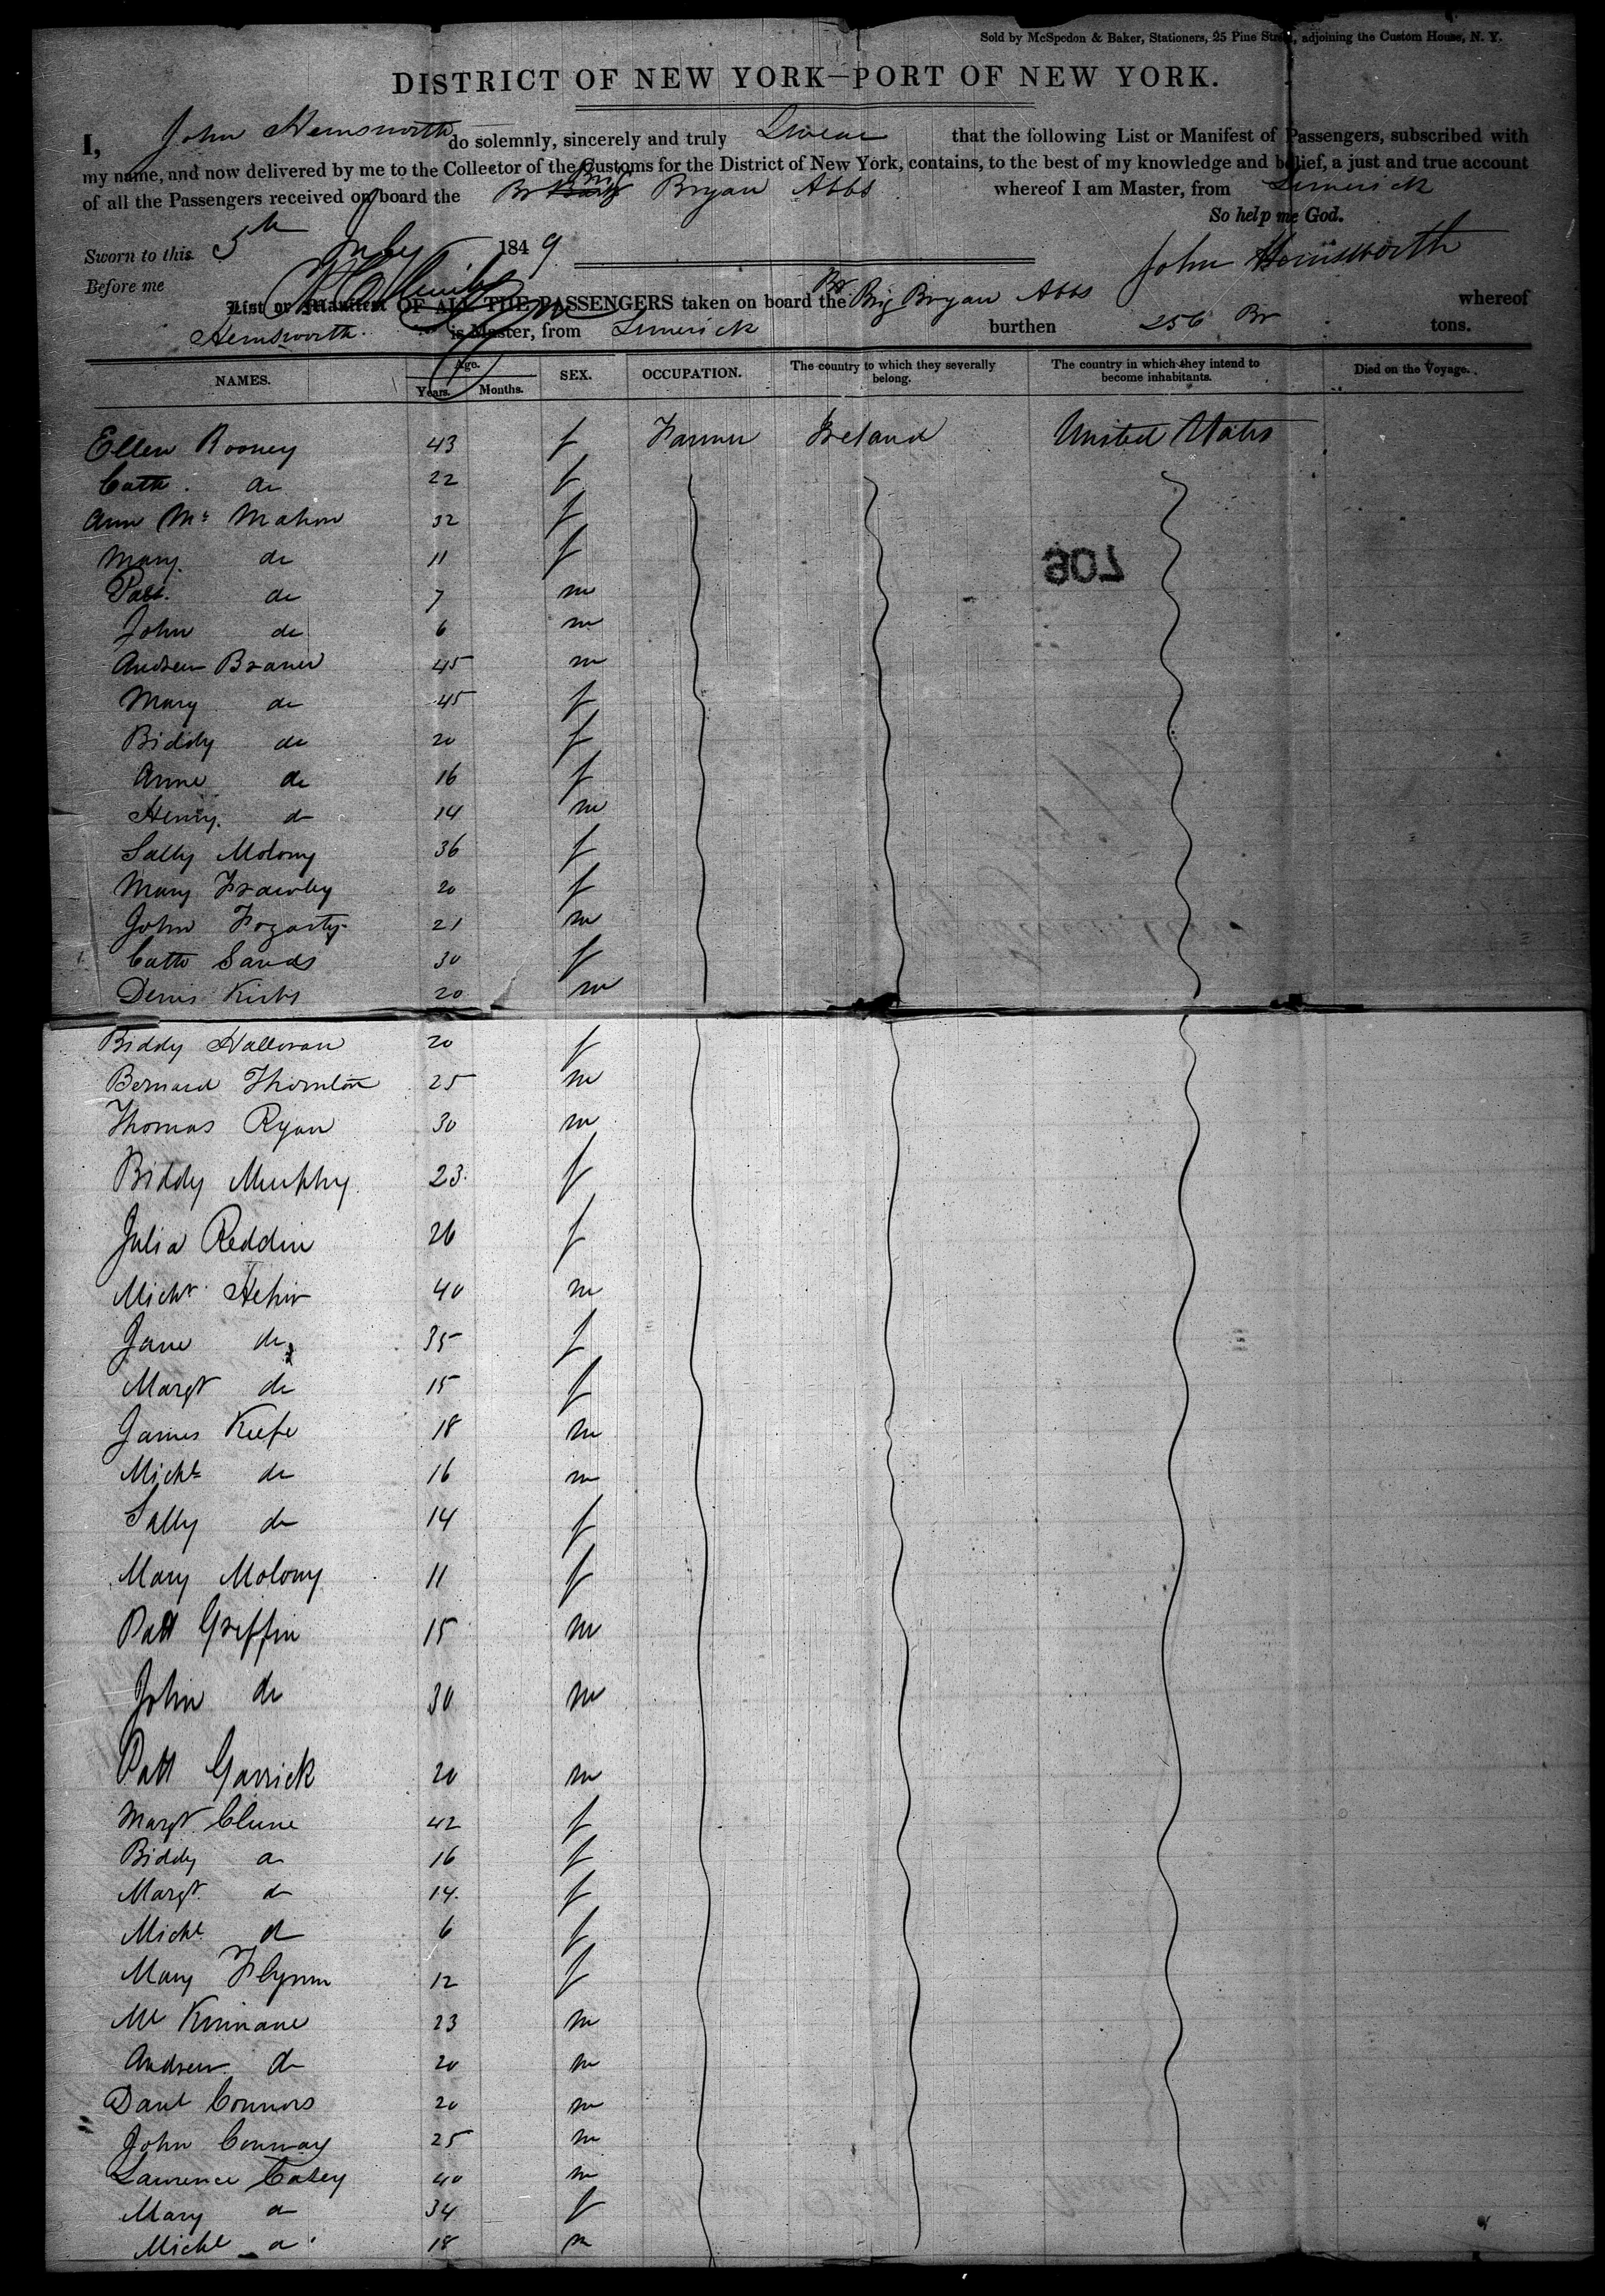 Sold by McSpedon & Baker, Stationers, 25 Pine Street, adjoining the Custom House, N. Y.
DISTRICT OF NEW YORK—PORT OF NEW YORK.
I, John Hemsworth do solemnly, sincerely and truly Swear that the following List or Manifest of Passengers, subscribed with
my name, and now delivered by me to the Collector of the Customs for the District of New York, contains, to the best of my knowledge and belief, a just and true account
of all the Passengers received on board the Br Brig Bryan Abbs whereof I am Master, from Limerick
So help me God.
Sworn to this 5th July 1849 John Hemsworth
Before me
List or Manifest OF ALL THE PASSENGERS taken on board the Br Brig Bryan Abbs whereof
Hemsworth is Master, from Limerick burthen 256 Br tons.
NAMES. Age. Years. Months. SEX. OCCUPATION. The country to which they severally belong. The country in which they intend to become inhabitants. Died on the Voyage.
Ellen Rooney 43 f Farmer Ireland United States
Cath. do 22 f
Ann Mc Mahon 32 f
907
Mary do 11 f
Patt. do 7 m
John do 6 m
Andrew 45 m
Mary do 45 f
Biddy do 20 f
Anne do 16 f
Henry do 14 m
Sally Molony 36 f
Mary Frawley 20 f
John Fogarty 21 m
Cath Sands 30 f
Denis Kirby 20 m
Biddy Halloran 20 f
Bernard Thornton 25 m
Thomas Ryan 30 m
Biddy Murphy 23 f
Julia Reddin 26 f
Michl Hehir 40 m
Jane do 35 f
Margt do 15 f
James Keefe 18 m
Michl do 16 m
Sally do 14 f
Mary Molony 11 f
Patt Griffin 15 m
John do 30 m
Patt Garrick 20 m
Margt Clune 42 f
Biddy do 16 f
Margt do 14 f
Michl do 6 f
Mary Flynn 12 f
Ml Kinnane 23 m
Andrew do 20 m
Danl Connors 20 m
John Conway 25 m
Lawrence Casey 40 m
Mary do 34 f
Michl do 18 m